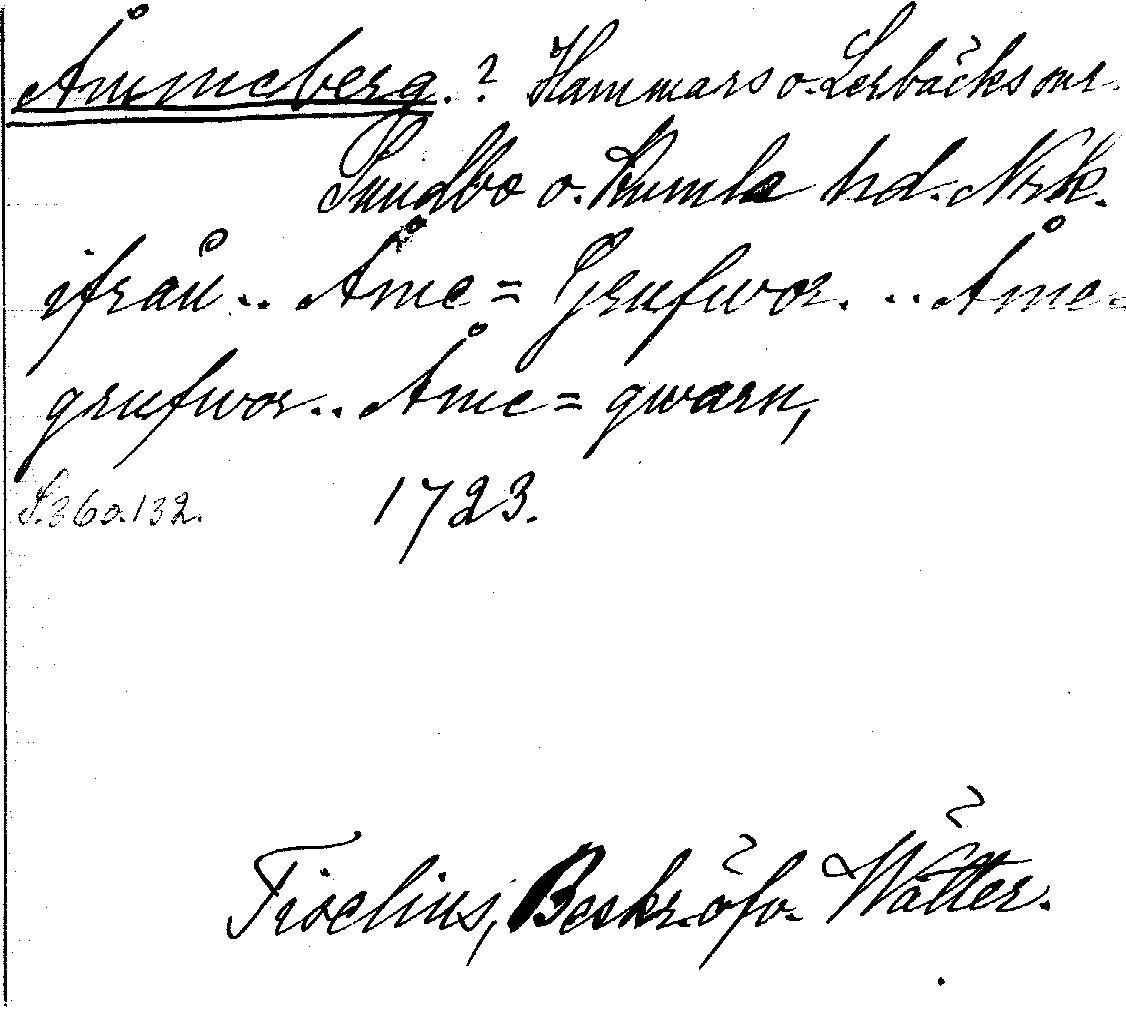 Åmmeberg.? Hammars o. Lerbäcks snr.
Sundbo o. Kumla hd. Nrk.
ifrån .. Åme= Grufwor. .. Åme=
grufwor .. Åme= qwarn,
S. 36 o. 132. 1723.
Tiselius, Beskr. öfv. Wätter.